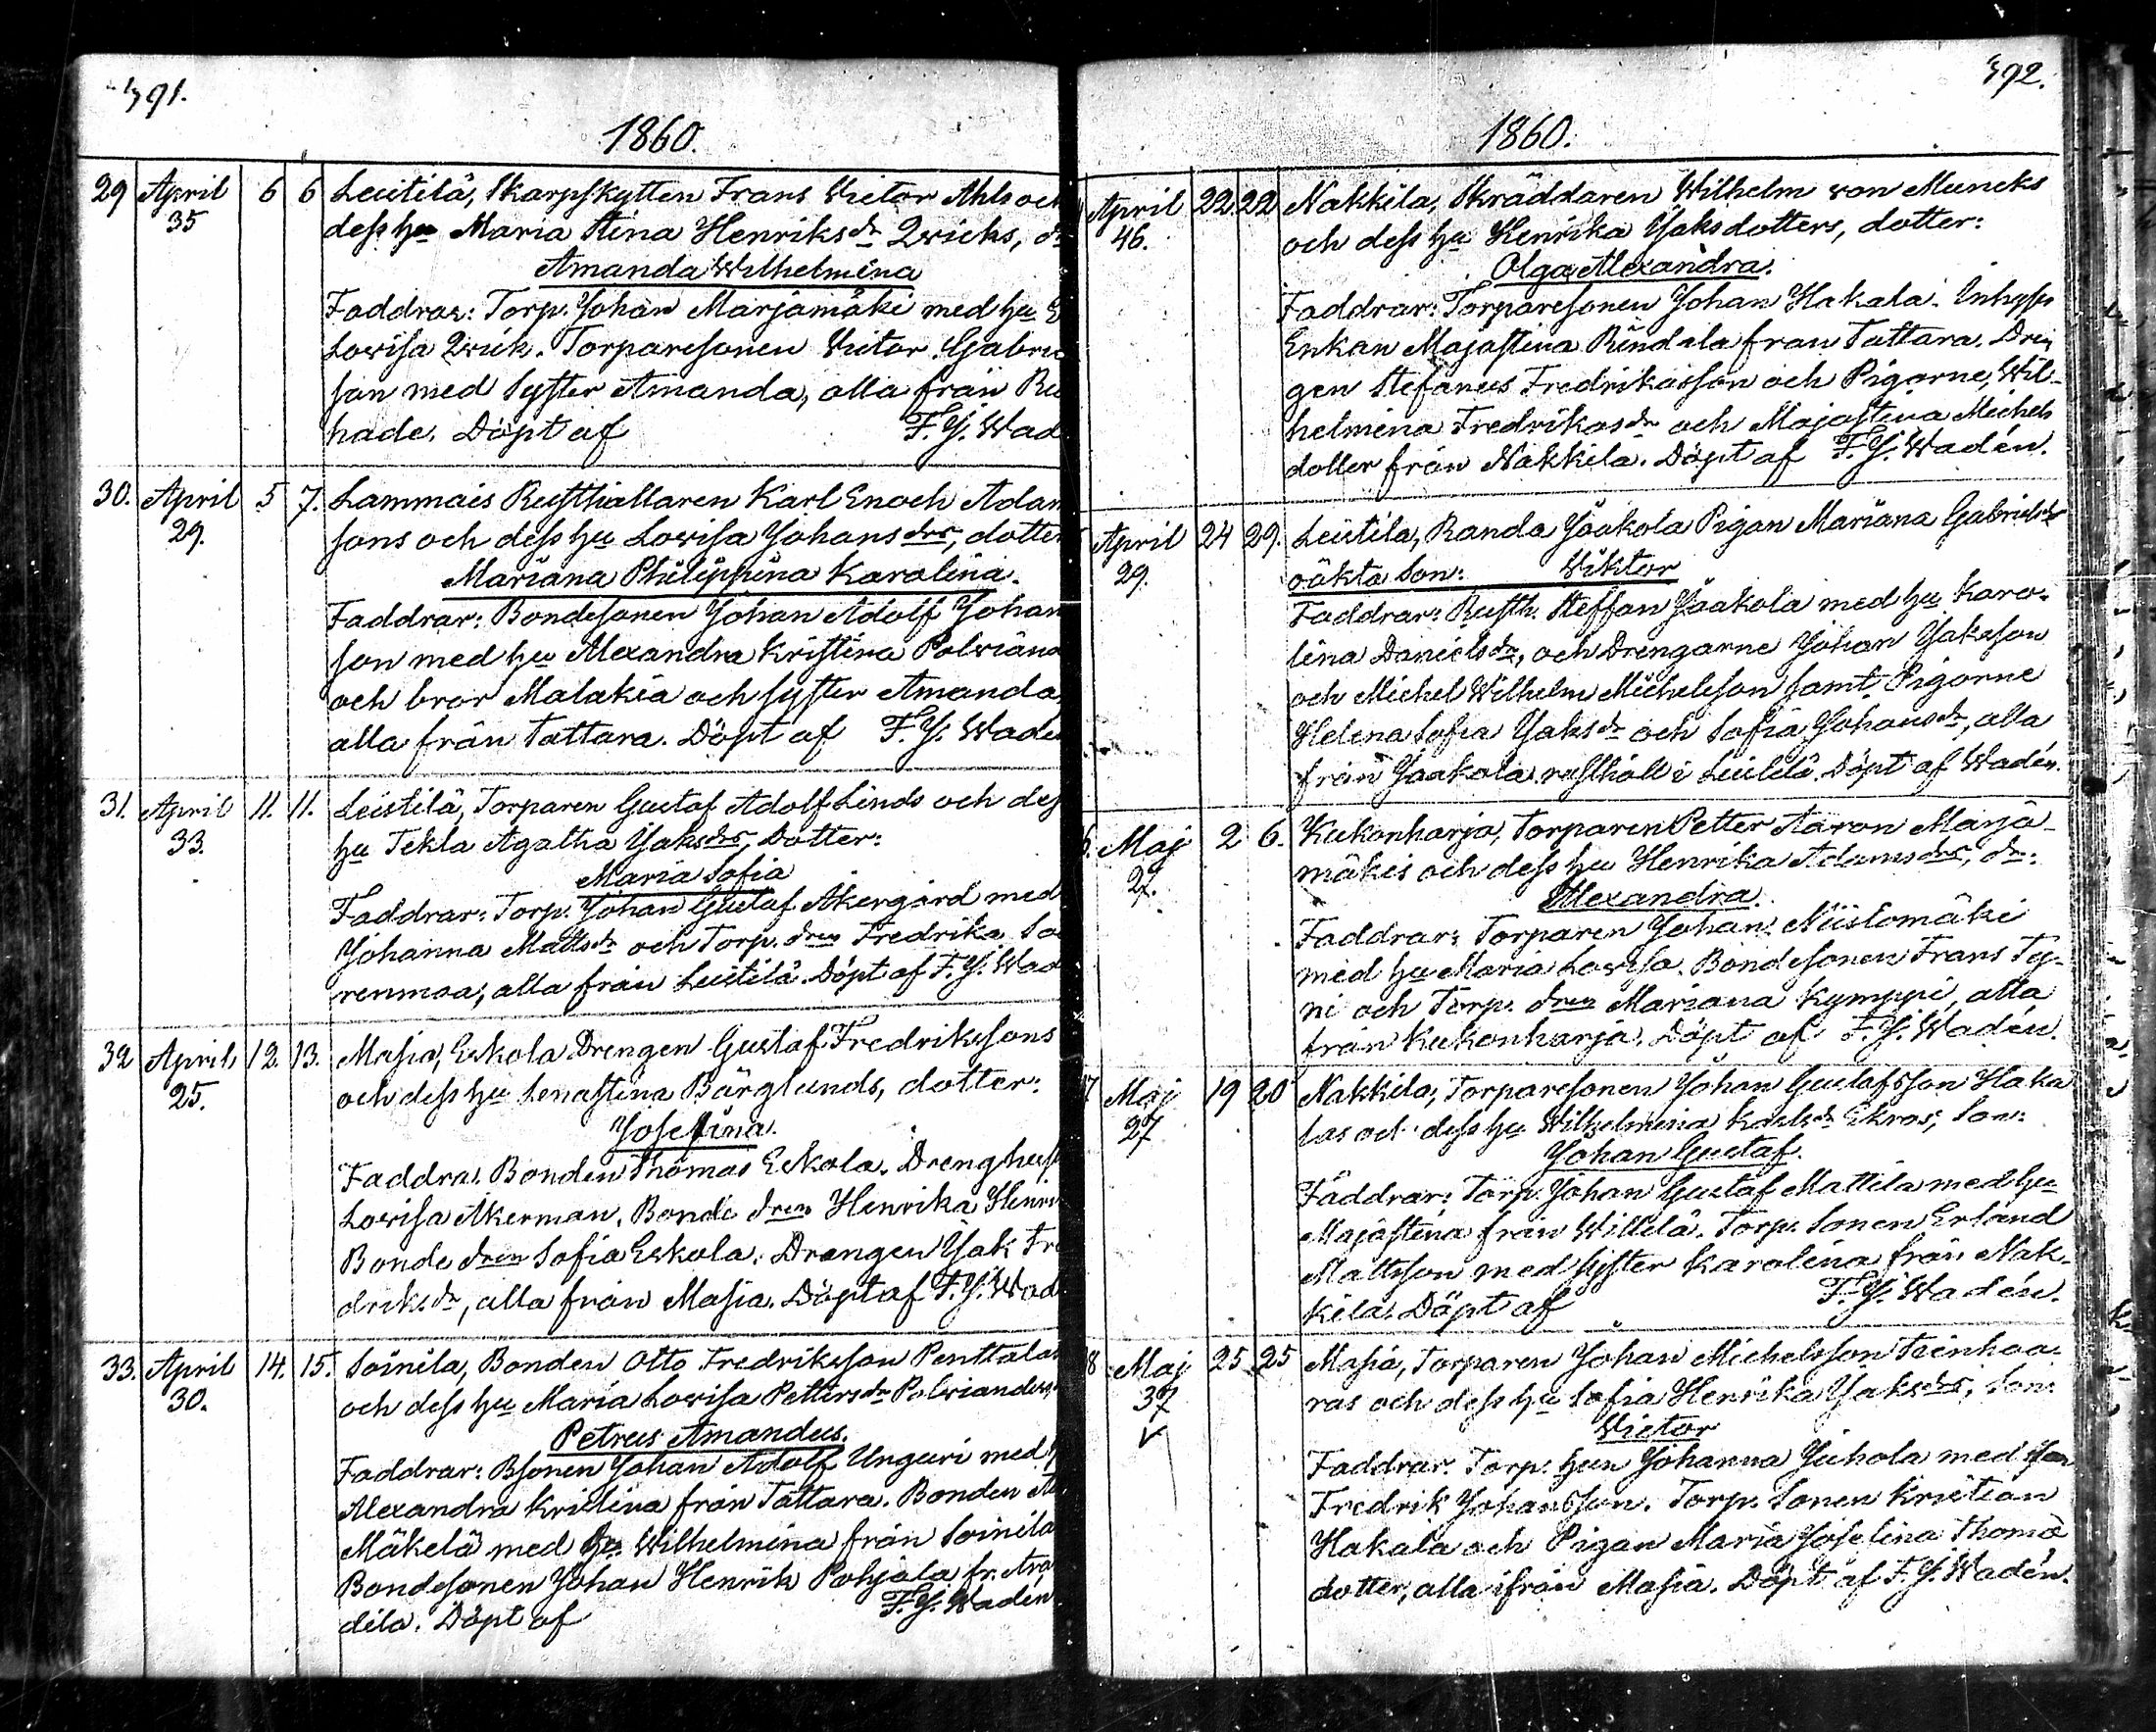 391.
1860.
29 April 6 6 Leistilä, Skarpskytten Frans Victor Ahls och
35 dess hu Maria Stina Henriksdr Qvicks, dr
Amanda Wilhelmina
Faddrar: Torp. Johan Marjamäki med hu
Lovisa Qvick. Torparesonen Victor Gabriel
son med Syster Amanda, alla från Ru
hade. Döpt af F.J. Wad
30. April 5 7. Lammais Rusthållaren Karl Enoch Adam
29. sons och dess hu Lovisa Johansdrs, dotter
Mariana Philippina Karolina.
Faddrar: Bondesonen Johan Adolf Johan
son med hu Alexandra Kristina Polviana
och bror Malakia och syster Amanda,
alla från Tattara. Döpt af F.J. Wadén
31. April 11. 11. Leistilä, Torparen Gustaf Adolf Linds och dess
33. hu Tekla Agatha Jaksdrs, Dotter:
Maria Sofia
Faddrar: Torp. Johan Gustaf Åkergård med
Johanna Mattsdr och Torp. dren Fredrika So
renmaa, alla från Leistilä. Döpt af F.J. Wad
32 April 12. 13. Masia, Eskola Drengen Gustaf Fredrikssons
25. och dess hu Lenastina Bärglunds, dotter:
Josefina.
Faddra. Bonden Thomas Eskola. Drenghust
Lovisa Åkerman. Bonde dren Henrika Henri
Bonde dren Sofia Eskola. Drengen Jak Fre
driks.dr, alla från Masia. Döpt af F.J. Wad
33. April 14. 15. Soinila, Bonden Otto Fredriksson Penttalas
30. och dess hu Maria Lovisa Pettersdr Polvianders,
Petrus Amandus.
Faddrar: Bsonen Johan Adolf Unguri med h
Alexandra Kristina från Tattara. Bonden
Mäkelä med hu Wilhelmina från Soinila
Bondesonen Johan Henrik Pohjala fr. Ara
dila. Döpt af F.J. Wadén
392.
1860.
April 22 22 Nakkila, Skräddaren Wilhelm von Muncks
46. och dess hu Henrika Jaksdotters, dotter:
Olga Alexandra.
Faddrar: Torparesonen Johan Hakala. Inhyses
Enkan Majastina Rindala fran Tattara. Dren
gen Stefanus Fredrikasson och Pigorne, Wil-
helmina Fredrikasdr och Majastina Michels
dotter från Nakkila. Döpt af F.J. Wadén.
April 24 29. Leistilä, Randa Jaakola Pigan Mariana Gabrielsdr
29. oäkta Son: Viktor
Faddrar: Rusth. Steffan Jaakola med hu Karo-
lina Danielsdr, och Drengarne Johan Jaksson
och Michel Wilhelm Michelsson samt Pigorne
Helena Sofia Jaksdr och Sofia Johansdr, alla
från Jaakola rusthåll i Leistilä. Döpt af Wadén.
6. Maj 2 6. Kukonharja, Torparen Petter Aaron Marja-
27. mäkis och dess hu Henrika Adamsdrs, dr:
Alexandra.
Faddrar: Torparen Johan Niistomäki
med hu Maria Lovisa. Bondesonen Frans Ty-
ni och Torp. dren Mariana Kymppi, alla
från Kukonharja. Döpt af F.J. Wadén.
7 Maj 19 20 Nakkila, Torparesonen Johan Gustafsson Haka
27 las och dess hu Wilhelmina Karlsdr Ekros, Son:
Johan Gustaf.
Faddrar: Torp. Johan Gustaf Mattila med hu
Majastina från Willilä. Torp. Sonen Erland
Mattsson med syster Karolina från Nak-
kila. Döpt af F.J. Wadén.
8 Maj 25 25 Masia, Torparen Johan Michelsson Teinhaa-
37 ras och dess hu Sofia Henrika Jaksdrs, Son:
Victor
Faddrar. Torp. hun Johanna Juhola med Son
Fredrik Johansson. Torp. Sonen Kristian
Hakala och Pigan Maria Josefina Thomä
dotter, alla ifrån Masia. Döpt af F.J. Wadén.